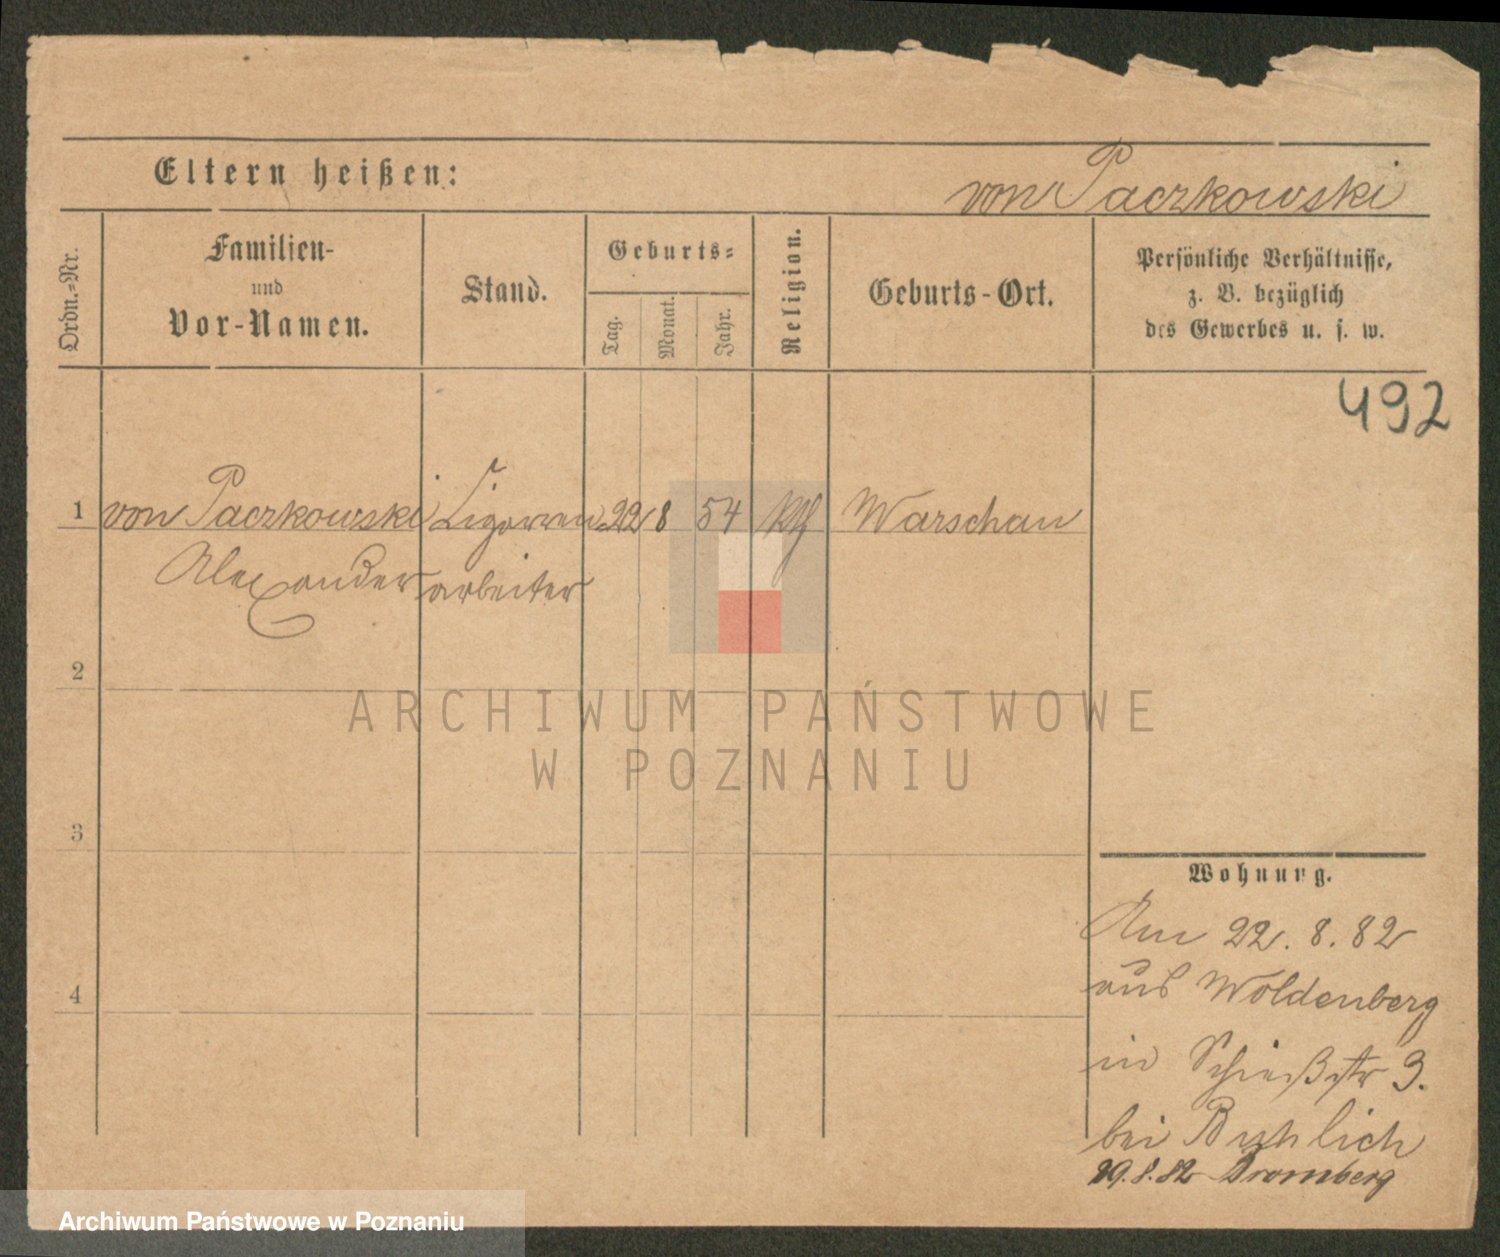 Eltern heißen:
von Paczkowski
Ordn.=Nr.
Familien-
und
Vor-Namen.
Stand.
Geburts=
Tag.
Monat.
Jahr.
Religion.
Geburts-Ort.
Persönliche Verhältnisse,
z. B. bezüglich
des Gewerbes u. s. w.
492
1 von Paczkowski Zigarren 22 8 54 kth Warschau
Alexander arbeiter
2
ARCHIWUM PAŃSTWOWE
W POZNANIU
3
4
Wohnung.
Am 22. 8. 82
aus Woldenberg
in Schießstr 3.
bei
29.8.82 Bromberg
Archiwum Państwowe w Poznaniu